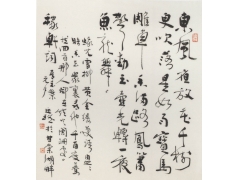 東風夜放花千樹
更吹落星如雨寶馬
雕車香滿路鳳簫
聲動玉壺光轉一夜
魚龍舞
蛾兒雪柳黃金縷笑語盈盈
暗香去眾裏尋他千百度驀
然回首那人卻在燈火闌珊處
稼軒詞